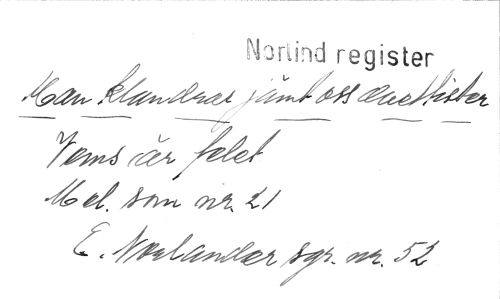 Norlind register
Man klandrar jämt oss duettister
Vems är felet
Mel. som nr. 21
E. Norlander sgr. nr. 52